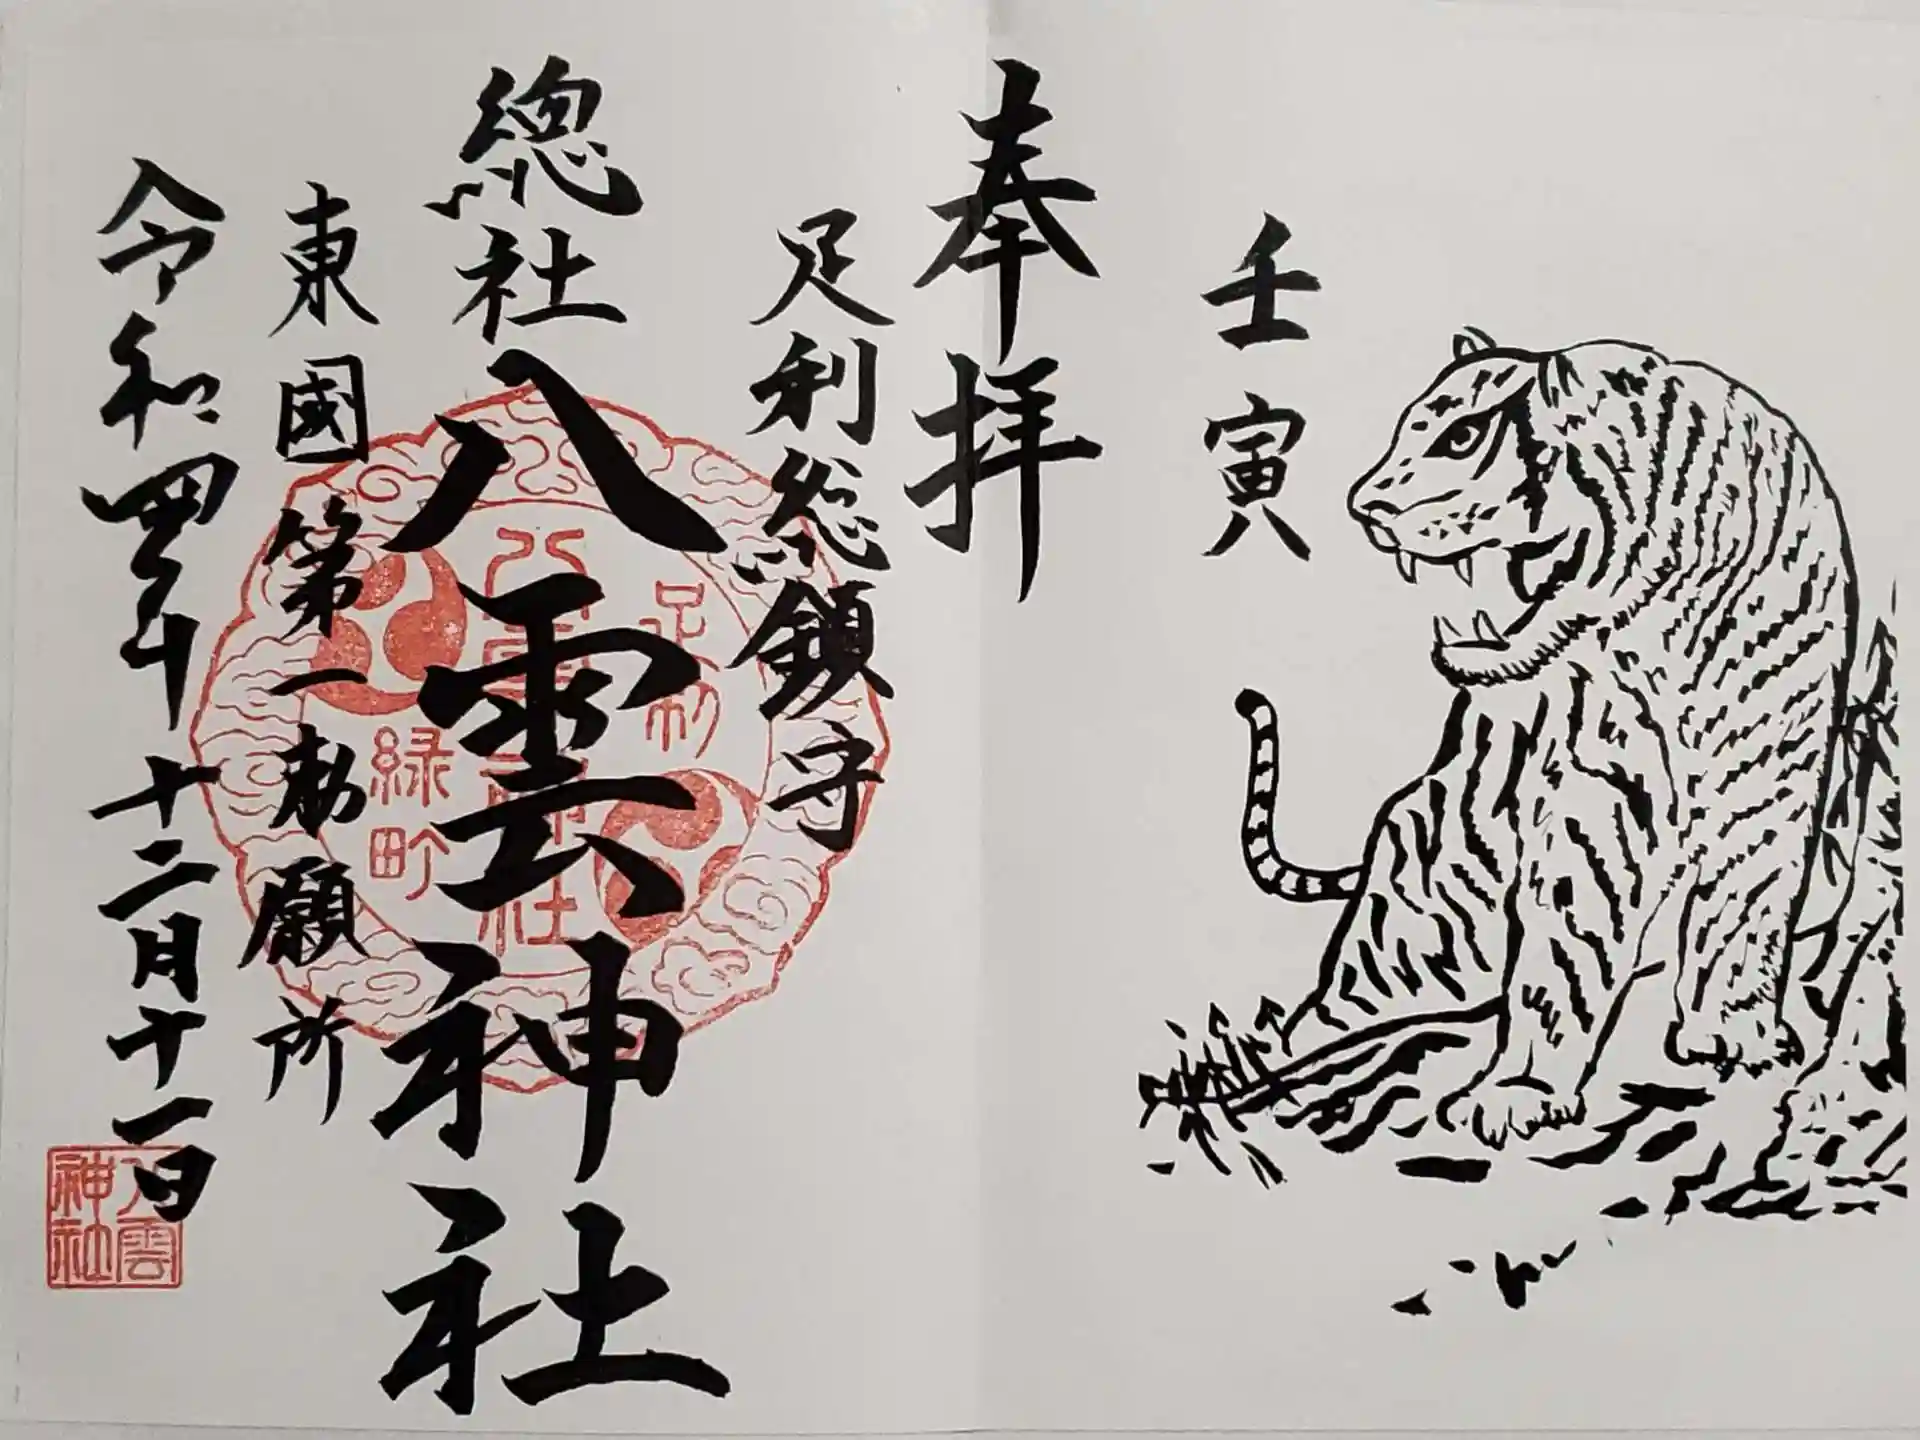 壬寅
奉拝
足利総鎮守
總社
八雲神社
東國第一勅願所
令和四年十二月十一日
足利
八雲神社
緑町
八雲
神社